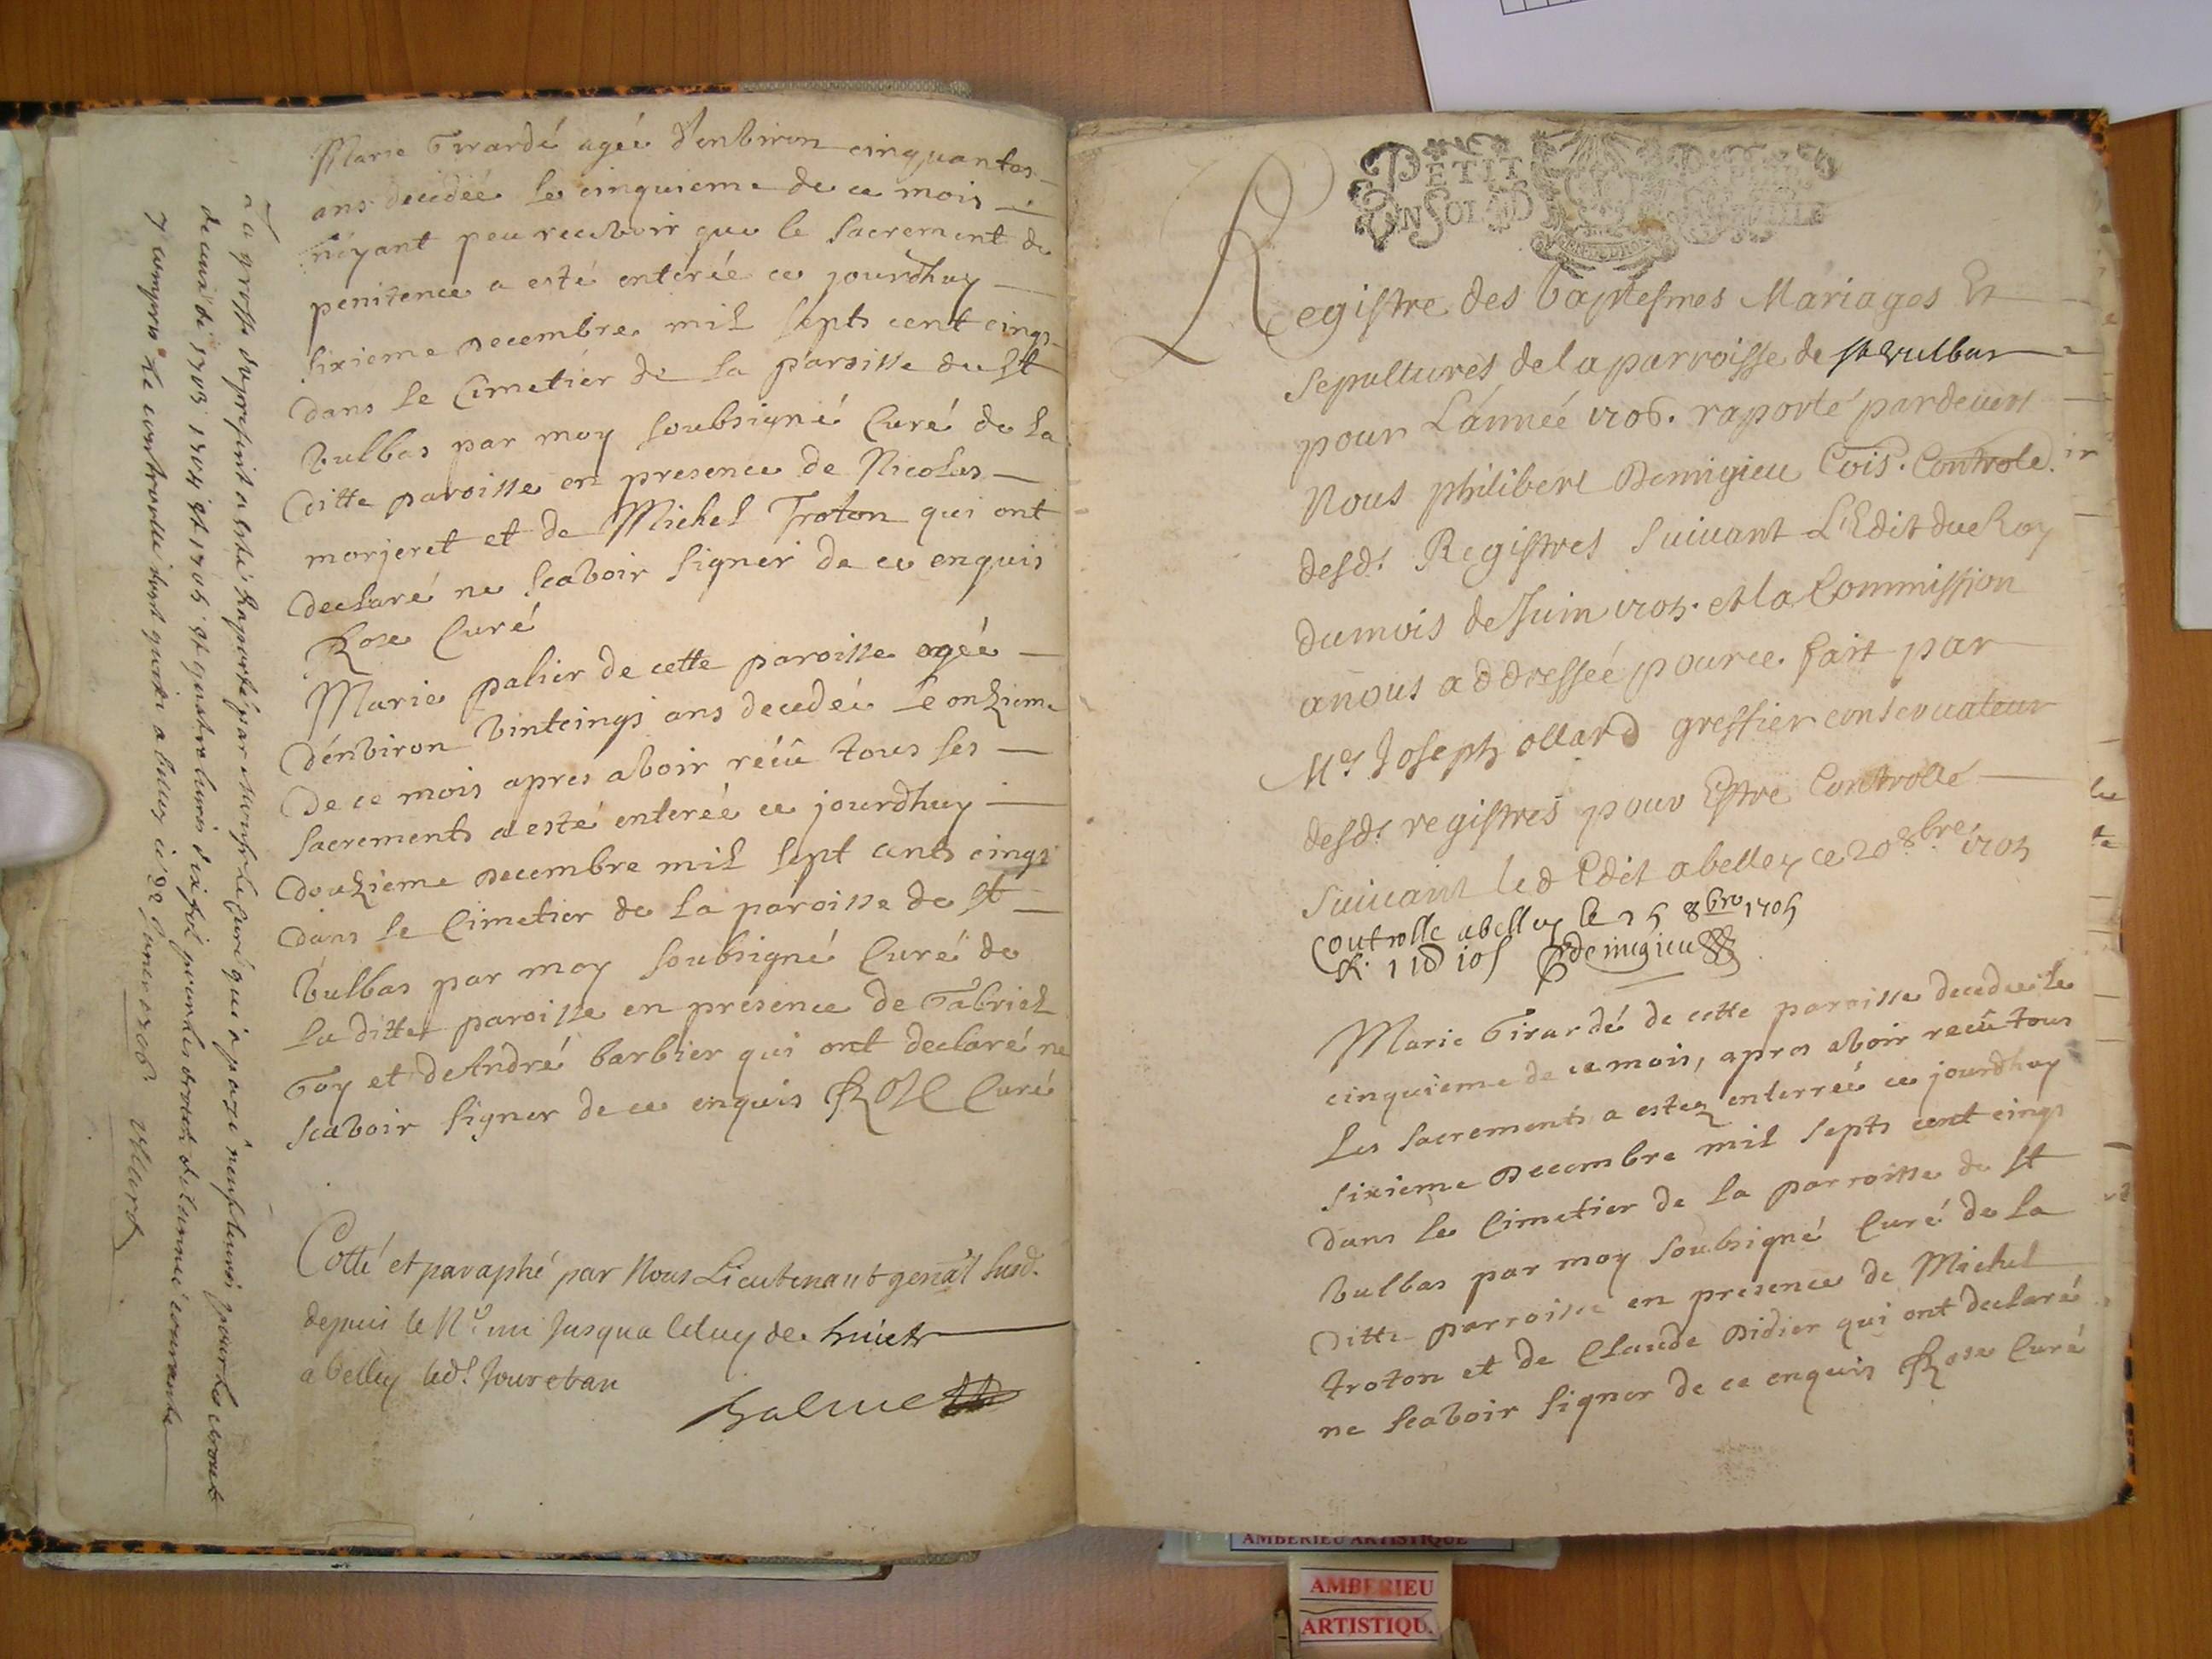 Marie Girardé agéé d'enbiron cinquantes
ans decedéé le cinquieme de ce mois
n'ÿant peu recevoir que le sacrement de
penitence a esté enteréé ce jourdhuy
sixieme decembre mil septs cent cinqs
dans le Cimetier de la paroisse du st
bulbas par moy soubsigné Curé de la
ditte paroisse en presence de Nicolas
morjeret et de Michel Troton qui ont
declaré ne scaboir signer de ce enquis
Rose Curé
Marie palier de cette paroisse agéé
d'enbiron vintcinqs ans decedéé le onzieme
de ce mois apres aboir réçû tous ses
sacrements a esté enteréé ce jourdhuy
douzieme decembre mil sept cents cinqs
dans le Cimetier de la paroisse de st
bulbas par moy soubsigné Curé de
la ditte paroisse en présence de Gabriel
Goy et de André barbier qui ont declaré ne
scaboir signer de ce enquis ROSE Curé
Cotté et paraphé par Nous Lieutenant genãl susd.
depuis le No. un jusqua celuy de huict
a belley led. jour et an
La grosse du present a esté raportée par le Curé qui a payé neuf livres pour les
de 1703 1704 et 1705 et quatre livres dix sols pour les droits de l'année courante
y compris le controlle dont quitte a belley ce 22 janvier 1706 Ollard
PETIT PAPIER
UN SOL
Registre des baptesmes Mariages Et
sepultures de la parroisse de st vulbas
pour L'année 1706. raporté pardevers
Nous philibert Demigieu Coñs. Controle.
desd. Registres suivant L'Edit du Roy
du mois de Juin 1705. et la Commission
a nous addresséé pour ce. fait par
Me Joseph ollard greffier conservateur
desd. registres pour Estre Controllé
suivant led Edit a belley ce 20 8bre 1705
Controlle a belley le 25 8bre 1705
R. 10s Demigieu
Marie Girardé de cette paroisse decedeé le
cinquieme de ce mois, apres aboir reçû tous
les sacrements a estez enterréé ce jourdhuy
sixieme decembre mil septs cent cinqs
dans le Cimetier de la parroisse de st
bulbas par moy soubsigné Curé de la
ditte parroisse en presence de Michel
Troton et de Claude Didier qui ont declaré
ne scaboir signer de ce enquis Rose Curé
AMBERIEU ARTISTIQUE
AMBERIEU
ARTISTIQU